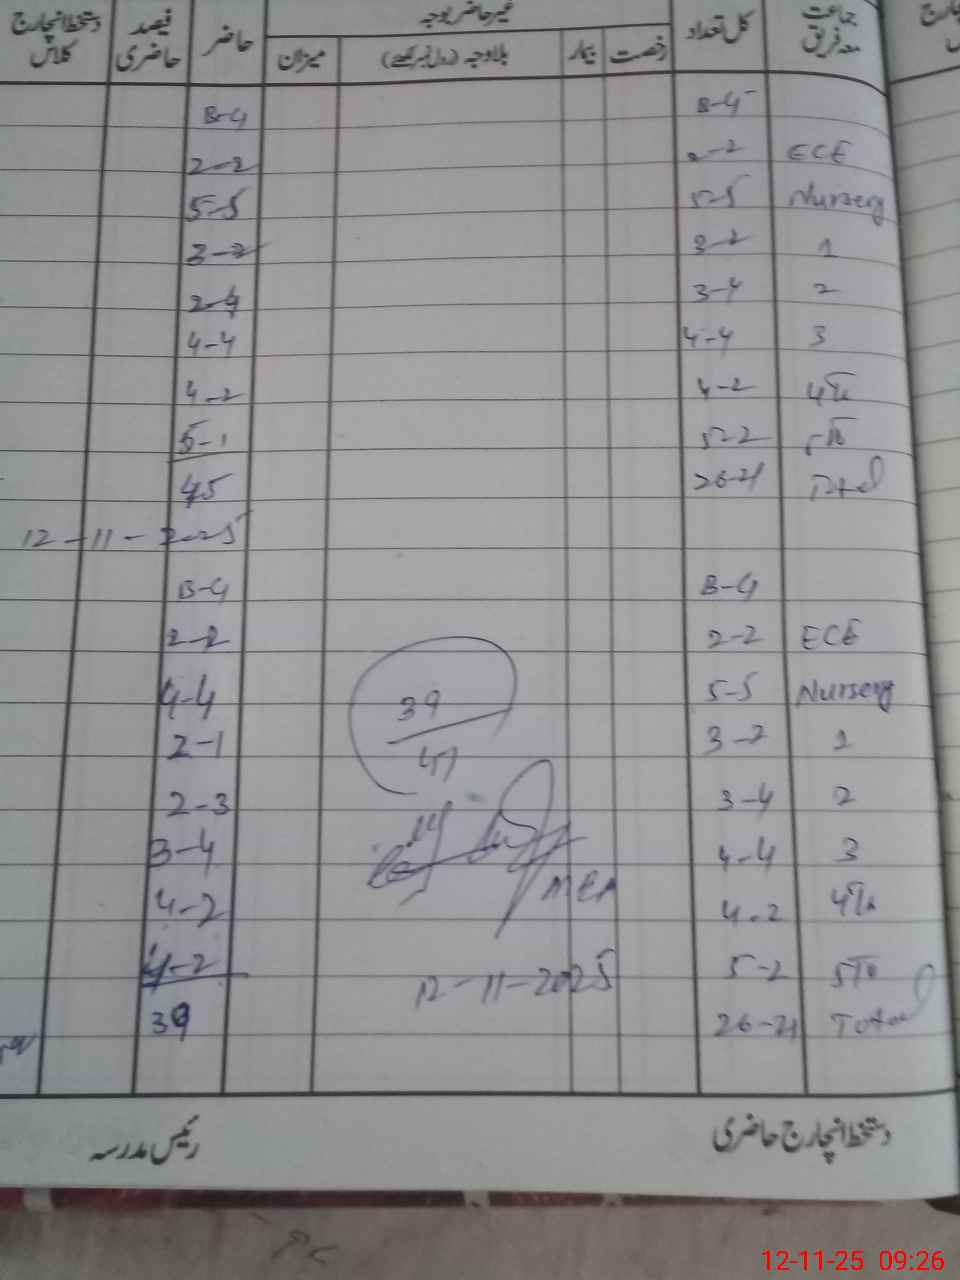 جماعت معہ فریق کل تعداد غیر حاضر بوجہ حاضر فیصد حاضری دستخط انچارج کلاس
رخصت بیمار بلاوجہ (رول نمبر لکھیے) میزان
B-G B-G
ECE 2-2 2-2
Nursery 5-5 5-5
1 3-2 3-2
2 3-4 2-4
3 4-4 4-4
4th 4-2 4-2
5th 5-2 5-1
Total 26-21 45
12-11-2025
B-G B-G
ECE 2-2 2-2
Nursery 5-5 4-4
1 3-2 39 2-1
2 3-4 47 2-3
3 4-4 3-4
4th 4-2 MEA 4-2
5th 5-2 12-11-2025 4-2
Total 26-21 39
دستخط انچارج حاضری رئیس مدرسہ
12-11-25 09:26